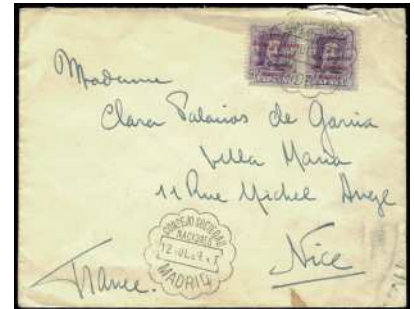 Madame
Clara Palacios de Garcia
Villa Maria
11 Rue Michel Ange
Nice
France.
CONSEJO SOCIEDAD
NACIONES
MADRID